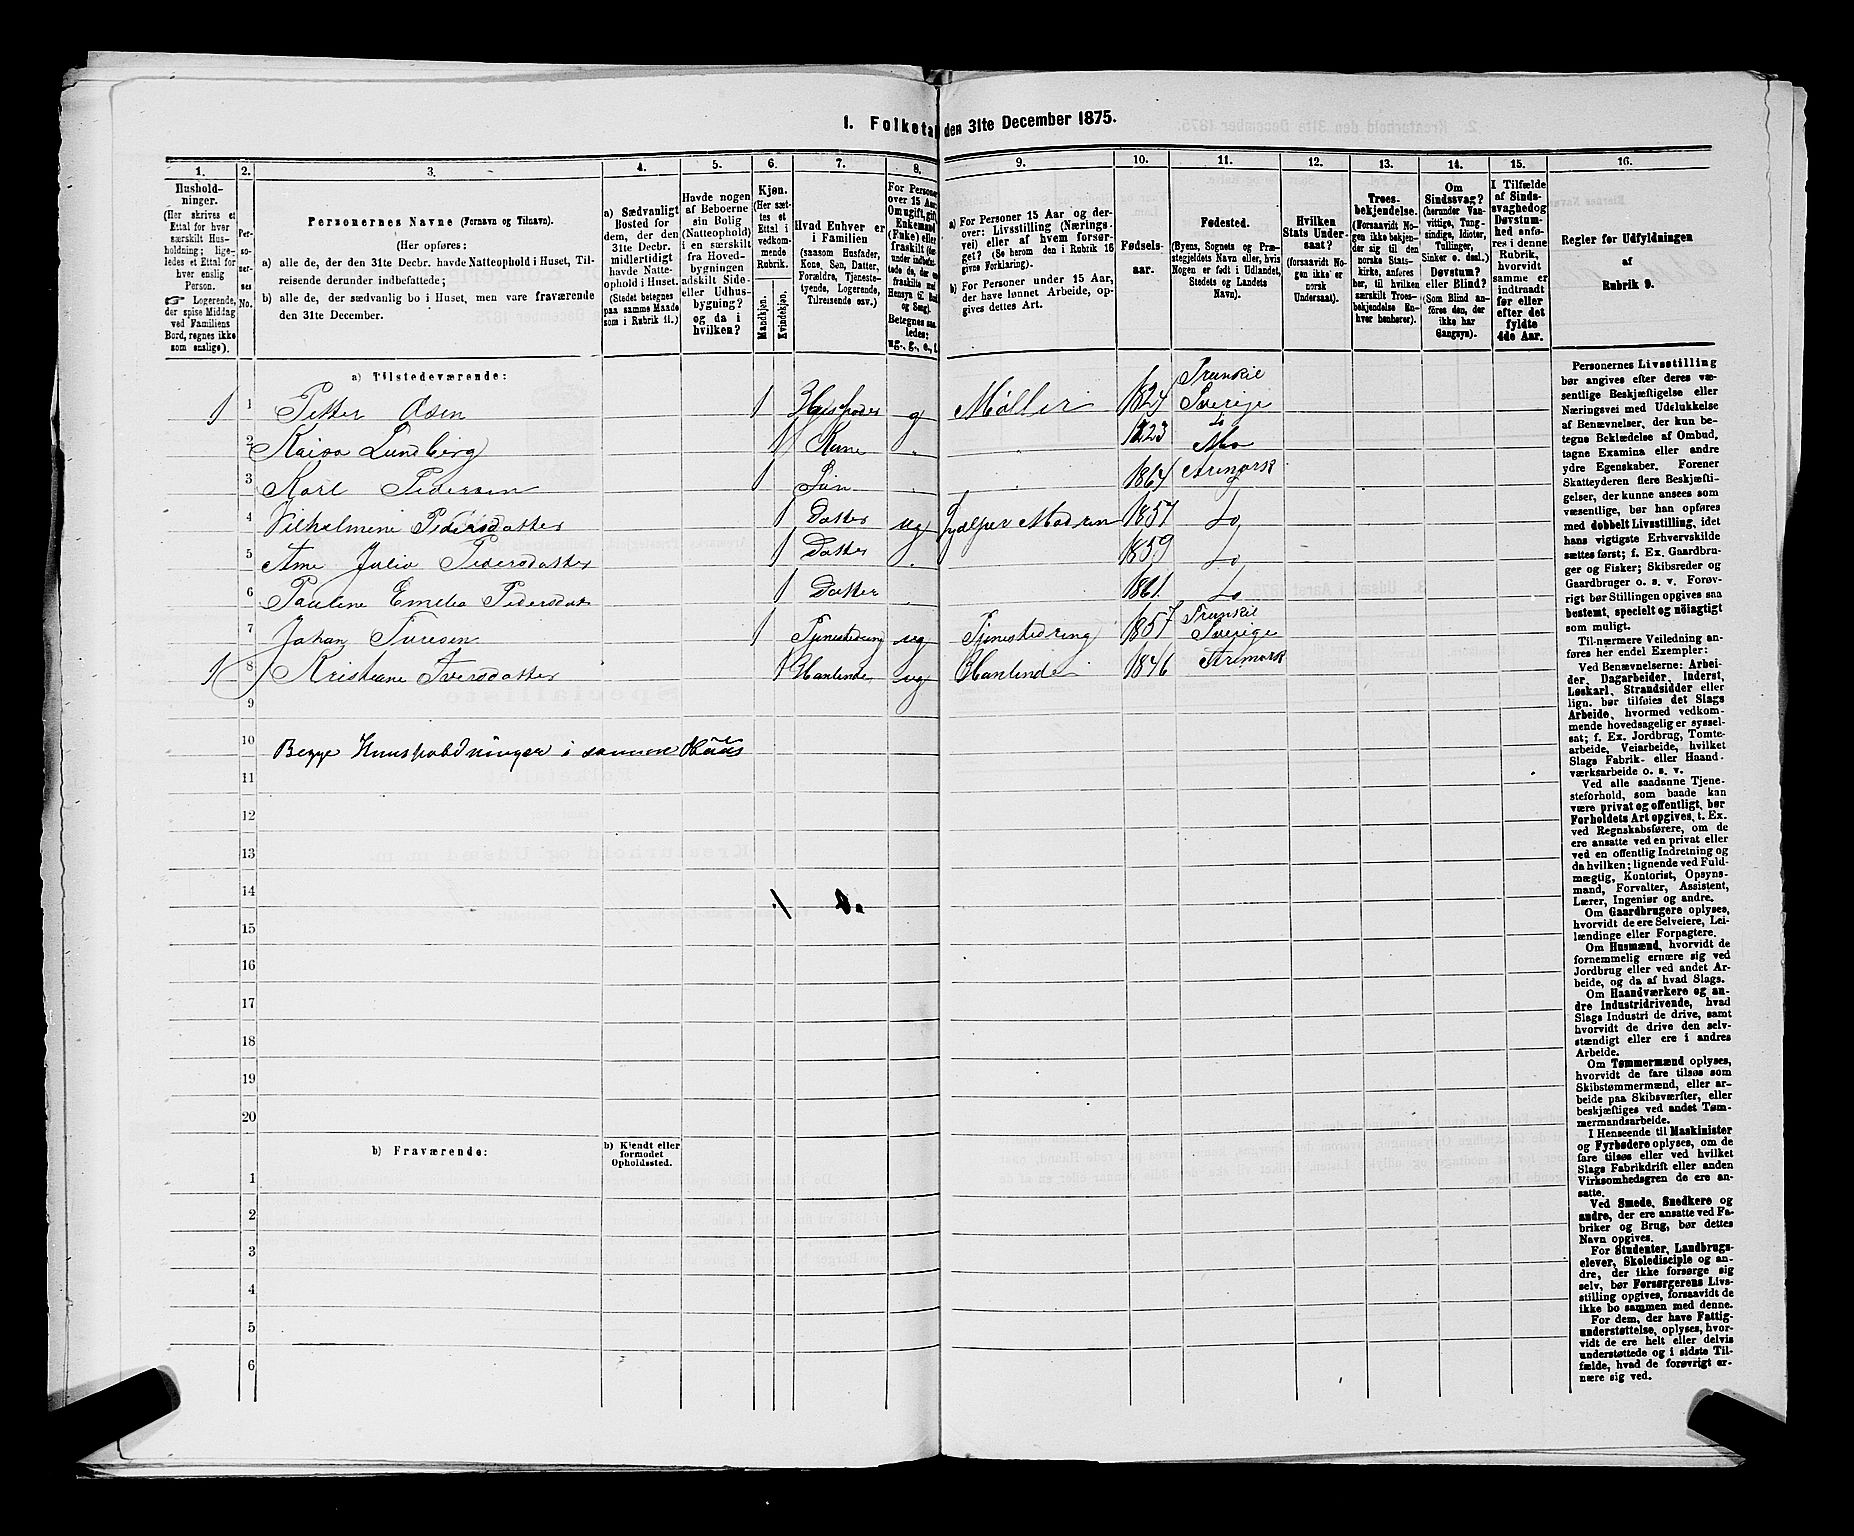 1. Folketal den 31te December 1875.
1. 2. 3. 4. 5. 6. 7. 8. 9. 10. 11. 12. 13. 14. 15. 16.
Hushold-
ninger.
(Her skrives et
Ettal for hver
særskilt Hus-
holdning; lige-
ledes et Ettal for
hver enslig
Person.
☞ Logerende,
der spise Middag
ved Familiens
Bord, regnes ikke
som enslige).
Per-
so-
ner-
nes
No.
Personernes Navne (Fornavn og Tilnavn).
(Her opføres:
a) alle de, der den 31te Decbr. havde Natteophold i Huset, Til-
reisende derunder indbefattede;
b) alle de, der sædvanlig bo i Huset, men vare fraværende
den 31te December.
a) Sædvanligt
Bosted for
dem, der den
31te Decbr.
midlertidigt
havde Natte-
ophold i Huset.
(Stedet betegnes
paa samme Maade
som i Rubrik 11.)
Havde nogen
af Beboerne
sin Bolig
(Natteophold)
i en særskilt
fra Hoved-
bygningen
adskilt Side-
eller Udhus-
bygning?
og da i
hvilken?
Kjøn.
(Her sæt-
tes et
Ettal i
vedkom-
mende
Rubrik.
Mandkjøn.
Kvindekjøn.
Hvad Enhver er
i Familien
(saasom Husfader,
Kone, Søn, Datter,
Forældre, Tjeneste-
tyende, Logerende,
Tilreisende osv.)
For Personer
over 15 Aar:
Om ugift, gift,
Enkemand
(Enke) eller
fraskilt
Betegnes saa-
ledes:
ug., g., e., f.
a) For Personer 15 Aar og der-
over: Livsstilling (Nærings-
vei) eller af hvem forsør-
get? (Se herom den i Rubrik 16
givne Forklaring).
b) For Personer under 15 Aar,
der have lønnet Arbeide, op-
gives dettes Art.
Fødsels-
aar.
Fødested.
(Byens, Sognets og Præ-
stegjeldets Navn eller, hvis
Nogen er født i Udlandet,
Stedets og Landets
Navn).
Hvilken
Stats Under-
saat?
(forsaavidt No-
gen ikke er
norsk
Undersaat).
Troes-
bekjendelse.
(Forsaavidt No-
gen ikke bekjen-
der sig til den
norske Stats-
kirke, anføres
her, til hvilken
særskilt Troes-
bekjendelse En-
hver henhører).
Om
Sindssvag?
(herunder Van-
vittige, Tung-
sindige, Idioter,
Tullinger,
Sinker o. desl.)
Døvstum?
eller Blind?
(Som Blind an-
føres den, der
ikke har
Gangsyn).
I Tilfælde
af Sinds-
svaghed og
Døvstum-
hed anfø-
res i denne
Rubrik,
hvorvidt
samme er
indtraadt
før eller
efter det
fyldte
4de Aar.
Regler for Udfyldningen
af
Rubrik 9.
a) Tilstedeværende:
1 1 Petter Osen 1 Husfader g Møller 1824 Trankil Sverige
2 Kaisa Lundberg 1 Kone 1823 do Mo
3 Karl Pedersen 1 Søn 1864 Aremark
4 Vilhelmine Pedersdatter 1 Datter ug hjælper Moderen 1857 Do
5 Ane Julia Pedersdatter 1 Datter 1859 Do
6 Pauline Emelia Pedersdat 1 Datter 1861 Do
7 Johan Turesen 1 Tjenestedreng ug Tjenestedreng 1857 Trankil Sverige
1 8 Kristiane Iversdatter 1 Hanlende ug Hanlende 1846 Aremark
9
10 Begge Huusholdninger i samme Huus
11
12
13
14
15
16
17
18
19
20
b) Fraværende:
b) Kjendt eller
formodet
Opholdssted.
1
2
3
4
5
6
Personernes Livsstilling
bør angives efter deres væ-
sentlige Beskjæftigelse eller
Næringsvei med Udelukkelse
af Benævnelser, der kun be-
tegne Beklædelse af Ombud,
tagne Examina eller andre
ydre Egenskaber. Forener
Skatteyderen flere Beskjæfti-
gelser, der kunne ansees som
væsentlige, bør han opføres
med dobbelt Livsstilling, idet
hans vigtigste Erhvervskilde
sættes først; f. Ex. Gaardbru-
ger og Fisker; Skibsreder og
Gaardbruger o. s. v. Forøv-
rigt bør Stillingen opgives saa
bestemt, specielt og nøiagtigt
som muligt.
Til nærmere Veiledning an-
føres her endel Exempler:
Ved Benævnelserne: Arbei-
der, Dagarbeider, Inderst,
Løskarl, Strandsidder eller
lign. bør tilføies det Slags
Arbeide, hvormed vedkom-
mende hovedsagelig er syssel-
sat; f. Ex. Jordbrug, Tomte-
arbeide, Veiarbeide, hvilket
Slags Fabrik- eller Haand-
værksarbeide o. s. v.
Ved alle saadanne Tjene-
steforhold, som baade kan
være privat og offentligt, bør
Forholdets Art opgives, t. Ex.
ved Regnskabsførere, om de
ere ansatte ved en privat eller
ved en offentlig Indretning og
da hvilken; lignende ved Fuld-
mægtig, Kontorist, Opsyns-
mand, Forvalter, Assistent,
Lærer, Ingeniør og andre.
Om Gaardbrugere oplyses,
hvorvidt de ere Selveiere, Lei-
lændinge eller Forpagtere.
Om Husmænd, hvorvidt de
fornemmelig ernære sig ved
Jordbrug eller ved andet Ar-
beide, og da af hvad Slags.
Om Haandværkere og an-
dre industridrivende, hvad
Slags Industri de drive, samt
hvorvidt de drive den selv-
stændigt eller ere i andres
Arbeide.
Om Tømmermænd oplyses,
hvorvidt de fare tilsøs som
Skibstømmermænd, eller ar-
beide paa Skibsværfter, eller
beskjæftiges ved andet Tøm-
mermandsarbeide.
I Henseende til Maskinister
og Fyrbødere oplyses, om de
fare tilsøs eller ved hvilket
Slags Fabrikdrift eller anden
Virksomhedsgren de ere an-
satte.
Ved Smede, Snedkere og
andre, der ere ansatte ved Fa-
briker og Brug, bør dettes
Navn opgives.
For Studenter, Landbrugs-
elever, Skoledisciple og an-
dre, der ikke forsørge sig
selv, bør Forsørgerens Livs-
stilling opgives, forsaavidt de
ikke bo sammen med denne.
For dem, der have Fattig-
understøttelse, oplyses, hvor-
vidt de ere helt eller delvis
understøttede og i sidste Til-
fælde, hvad de forøvrigt er-
nære sig ved.